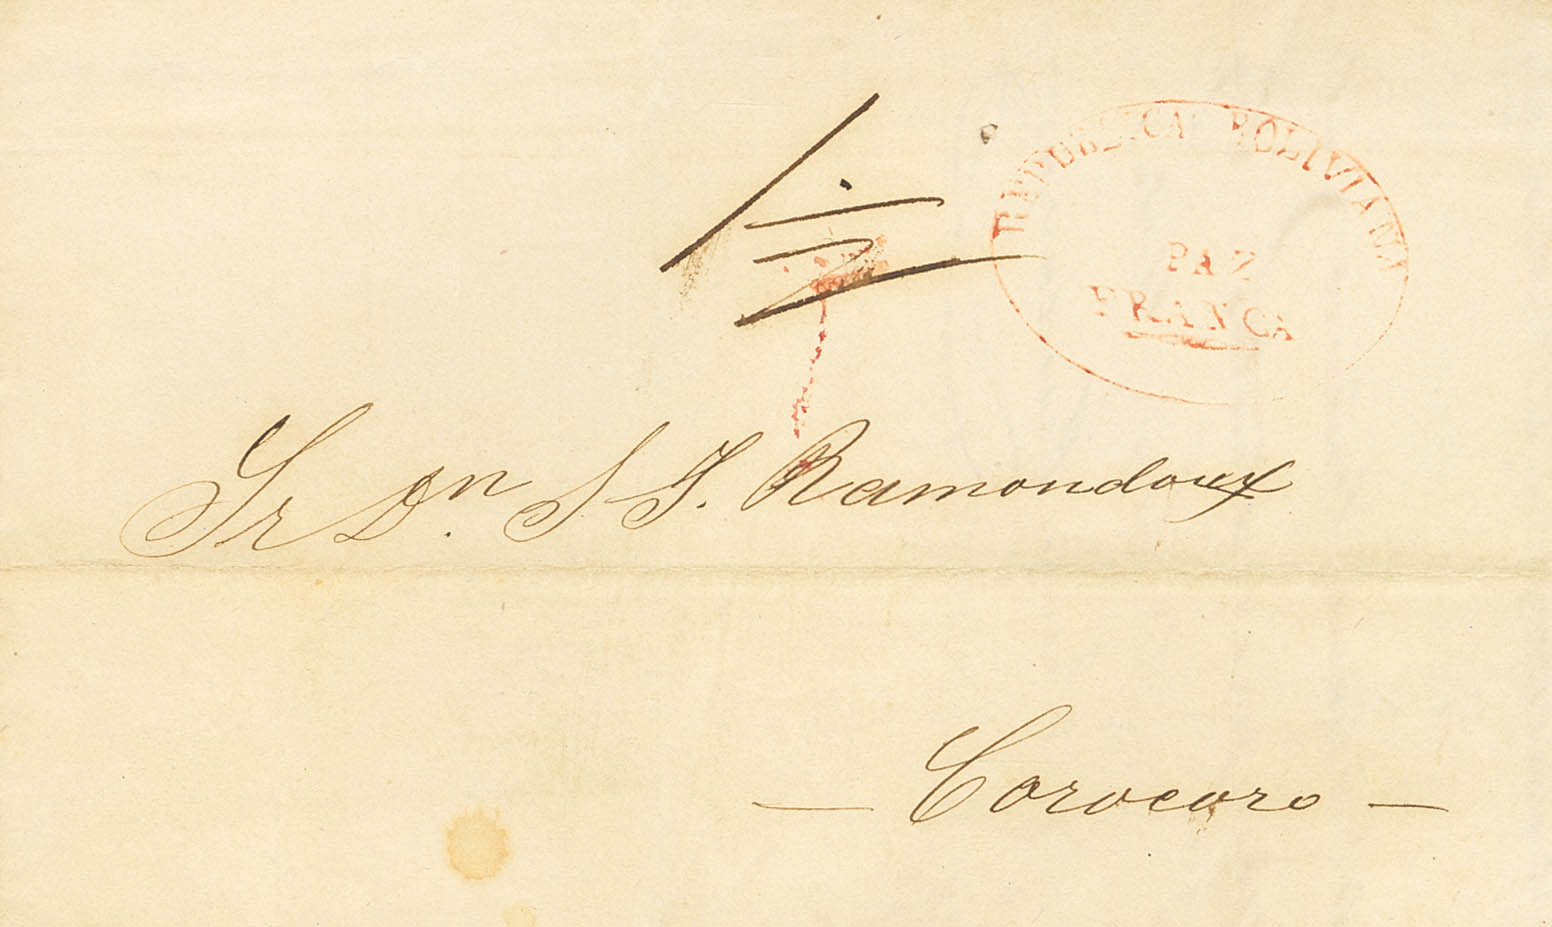 REPUBLICA BOLIVIANA
PAZ
FRANCA
Sr Dn. S. J. Ramondoux
— Corocoro —